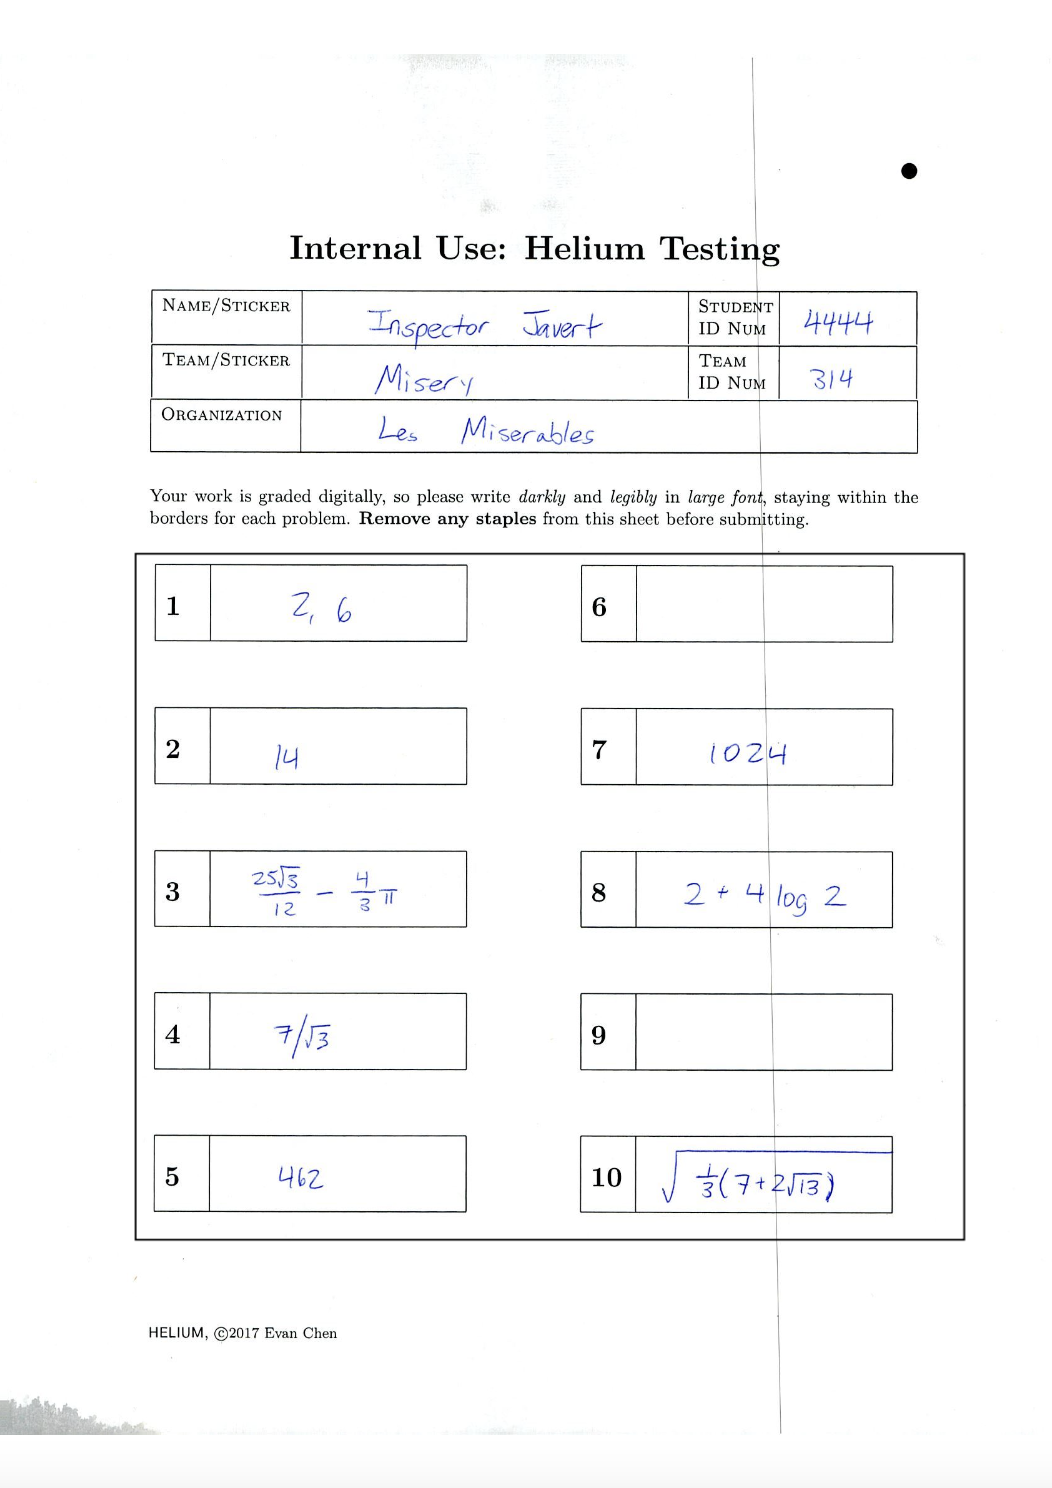 Internal Use: Helium Testing
NAME/STICKER Inspector Javert STUDENT ID NUM 4444
TEAM/STICKER Misery TEAM ID NUM 314
ORGANIZATION Les Miserables
Your work is graded digitally, so please write darkly and legibly in large font, staying within the
borders for each problem. Remove any staples from this sheet before submitting.
1 2, 6
2 14
3 25√3/12 - 4/3 π
4 7/√3
5 462
6
7 1024
8 2 + 4 log 2
9
10 √(1/3(7+2√13))
HELIUM, ©2017 Evan Chen